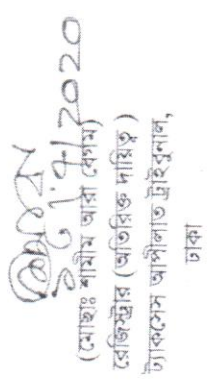 (মোছাঃ শামীম আরা বেগম)
রেজিস্ট্রার (অতিরিক্ত দায়িত্ব)
ট্যাকসেস আপীলাত ট্রাইবুনাল,
ঢাকা